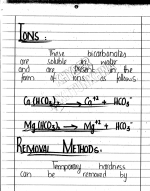 IONS :
These bicarbonates
are soluble in water
and are present in the
form of ions as follows:
Ca(HCO₃)₂ → Ca⁺² + HCO₃⁻
Mg(HCO₃)₂ → Mg⁺² + HCO₃⁻
REMOVAL METHODS:
Temporary hardness
can be removed by